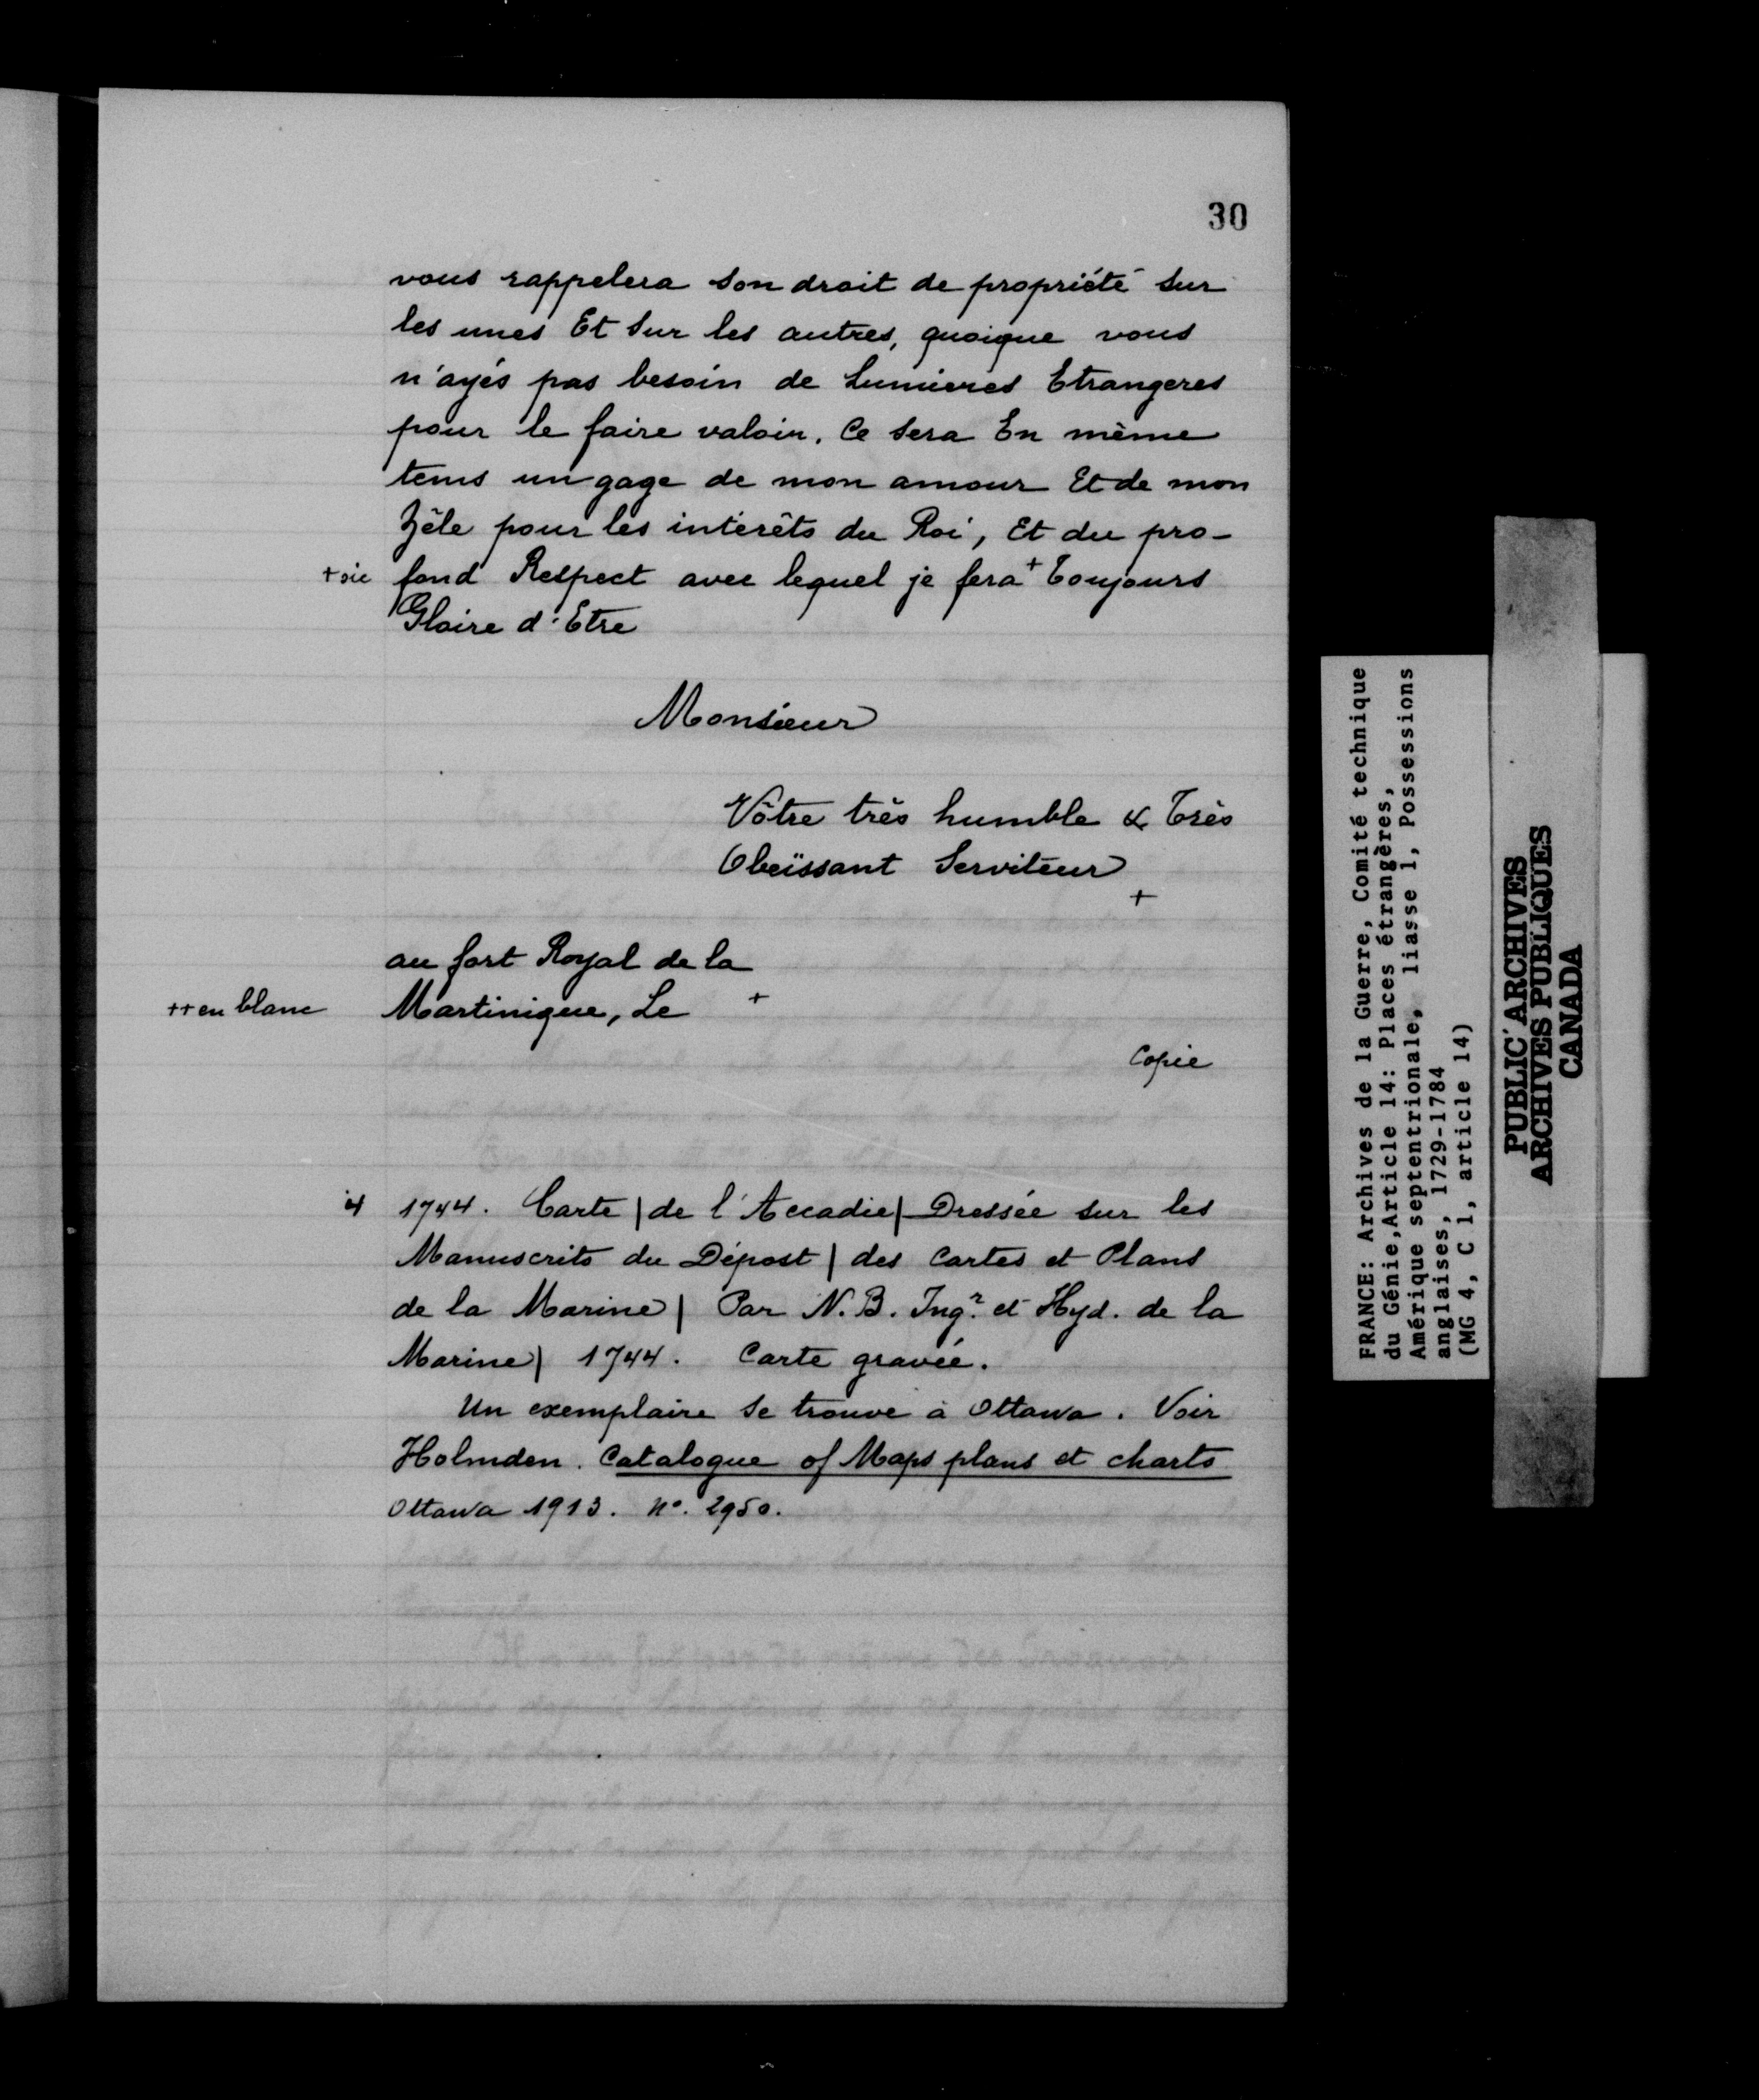 30
vous rappelera son droit de propriété sur
les unes Et sur les autres, quoique vous
n'ayés pas besoin de lumieres Etrangeres
pour le faire valoir. Ce sera En mème
tems un gage de mon amour Et de mon
Zêle pour les interêts du Roi, Et du pro-
+ sic fond Respect avec lequel je fera + toujours
Gloire d'Etre
Monsieur
Vôtre très humble & très
Obeïssant Serviteur
+
au fort Royal de la
++ en blanc Martinique, Le +
Copie
4 1744. Carte | de l'Accadie | Dressée sur les
Manuscrits du Dépost | des Cartes et Plans
de la Marine | Par N. B. Ingr. et Hyd. de la
Marine | 1744. Carte gravée.
Un exemplaire se trouve à Ottawa. Voir
Holmden. Catalogue of Maps plans et charts
Ottawa 1913. No. 2950.
FRANCE: Archives de la Guerre, Comité technique
du Génie, Article 14: Places étrangères,
Amérique septentrionale, liasse 1, Possessions
anglaises, 1729-1784
(MG 4, C 1, article 14)
PUBLIC ARCHIVES
ARCHIVES PUBLIQUES
CANADA